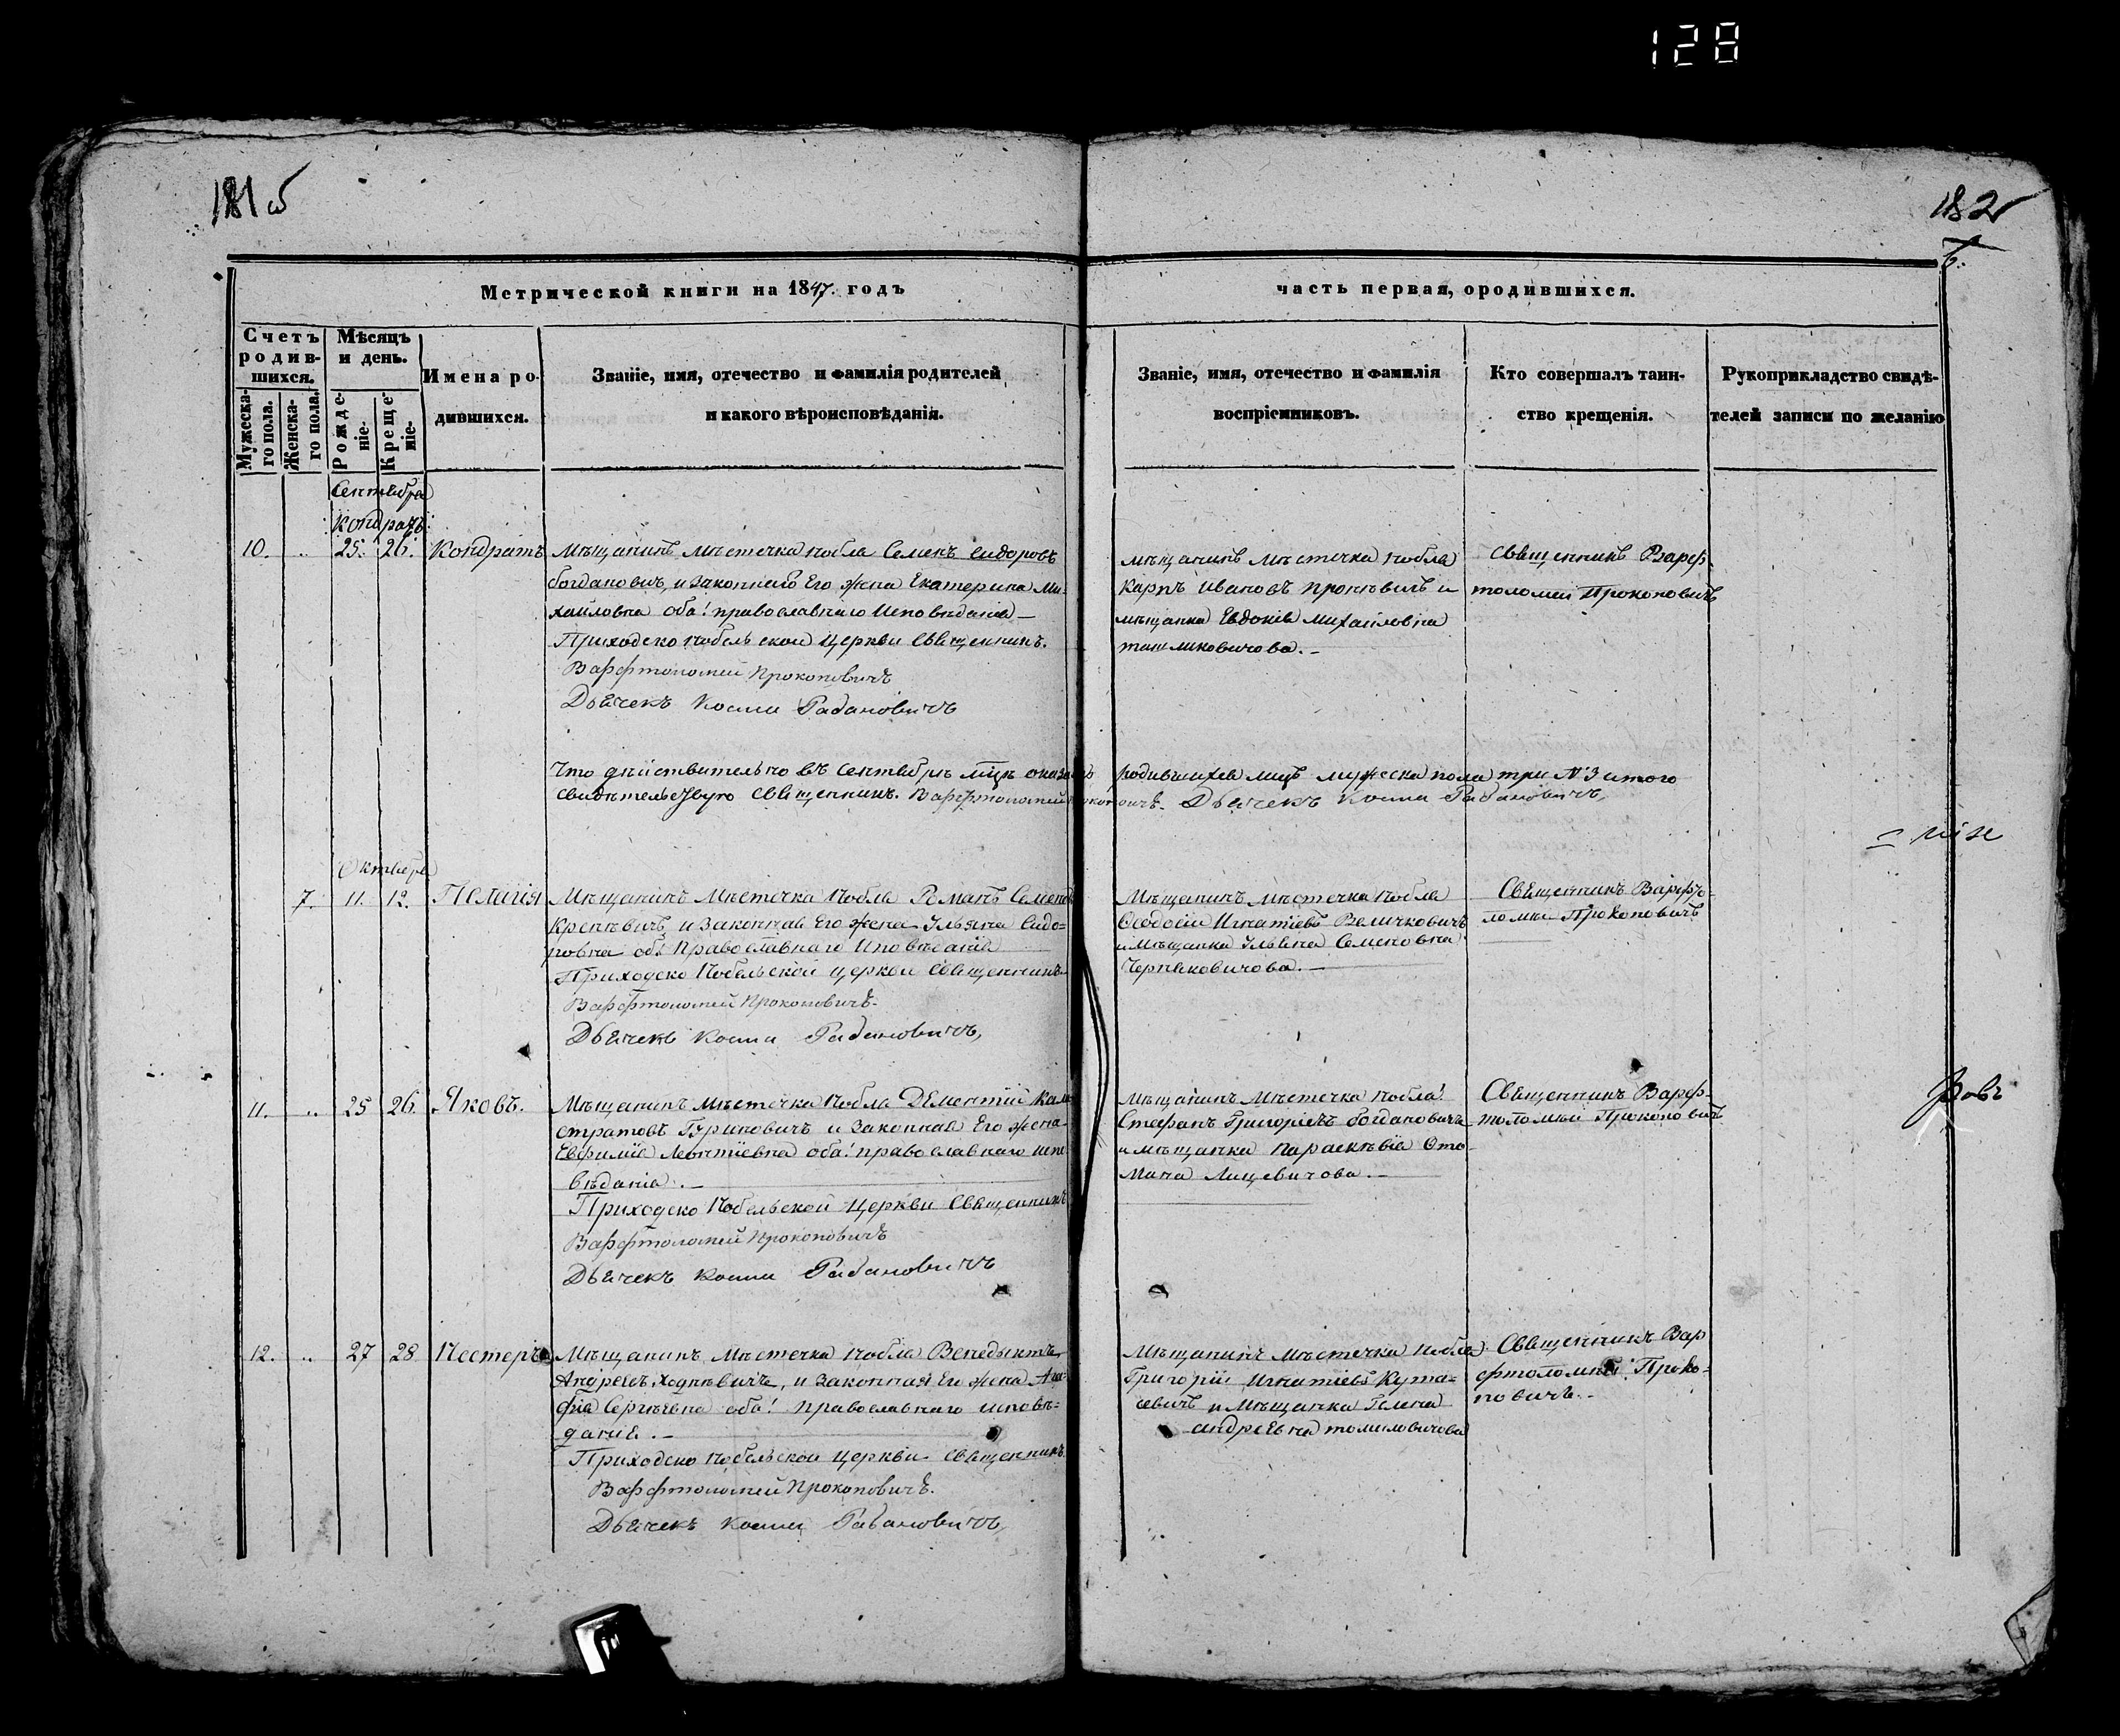 128
181 об
182
6.
Метрической книги на 1847. годъ
часть первая, ородившихся.
Счетъ родив-шихся.
Мѣсяцъ и день.
Мужеска-го пола.
Женска-го пола.
Рожде-ніе.
Креще-ніе.
Имена ро-
дившихся.
Званіе, имя, отечество и фамилія родителей
и какого вѣроисповѣданія.
Званіе, имя, отечество и фамилія
воспріемниковъ.
Кто совершалъ таин-
ство крещенія.
Рукоприкладство свидѣ-
телей записи по желанію
Сентября
Кондратъ
10. „ 25. 26. Кондратъ
Мѣщанинъ Мѣстечка Нобля Семенъ Сидоровъ
Богдановичъ, и Законная Его жена Екатерина Ми-
хайловна оба! православнаго Исповѣданія —
Приходско Нобельской Церкви Священникъ.
Варфтоломей Прокоповичъ
Дьячекъ Косма Рабановичъ
мѣщанинъ Мѣстечка Нобля
Карпъ Ивановъ Кренѣвичъ и
мѣщанка Евдокія Михайловна
. –
Священникъ Варф-
толомей Прокоповичъ
Что дѣйствительно въ Сентябрѣ мцѣ оказалось родившихся лицъ мужеска пола три №3 итого
Свидѣтельствую Священник. Варфтоломей Прокоповичъ. Дьячекъ Косма Рабановичъ,
Октября
7. 11. 12. Пелагія
Мѣщанинъ Мѣстечка Нобля Романъ Семеновъ
Кренѣвичъ, и Законная Его жена Ульяна Сидо=
ровна оба Православнаго Исповѣданія
Приходско Нобельской церкви Священникъ
Варфтоломей Прокоповичъ.
Дьячекъ Косма Рабановичъ,
Мѣщанинъ Мѣстечка Нобля
Феодосій Игнатіевъ Величковичъ
и Мѣщанка Ульяна Семеновна
Черняковичова. –
Священникъ Варфто=
ломѣй Прокоповичъ
11. „ 25 26. Яковъ.
Мѣщанинъ Мѣстечка Нобля Дементій Кали-
стратовъ Гуриновичъ и Законная Его жена
Евфимія Леонтіевна оба! православнаго испо
вѣданія. –
Приходско Нобельской Церкви Священникъ
Варфтоломей Прокоповичъ
Дьячекъ Косма Рабановичъ
Мѣщанинъ Мѣстечка Нобля!
Стефанъ Григоріевъ Богдановичъ
и мѣщанка Параскѣвія
Лицевичова. –
Священникъ Варф-
толомѣй Прокоповичъ
12. „ 27 28 Нестеръ
Мѣщанинъ, Мѣстечка Нобля Венедыктъ
Андреевъ Ходнѣвичъ, и Законная Его жена Ага-
фія Сергѣевна оба! православнаго исповѣ=
даніе. –
Приходско Нобельской церкви Священникъ
Варфтоломей Прокоповичъ.
Дьячекъ Косма Рабановичъ,
Мѣщанинъ Мѣстечка Нобля
Григорій Игнатіевъ
и Мѣщанка Гелена
андреевна томиловичова
Священникъ Вар
фтоломѣй Проко=
повичъ. –